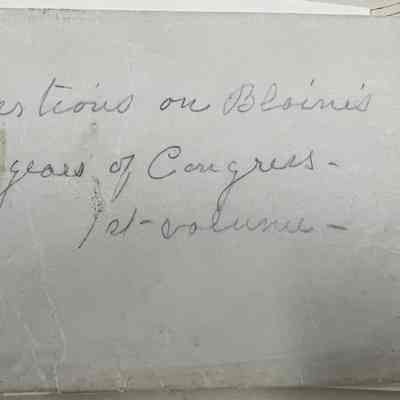 estions on Blaine's
years of Congress -
1st - volume -